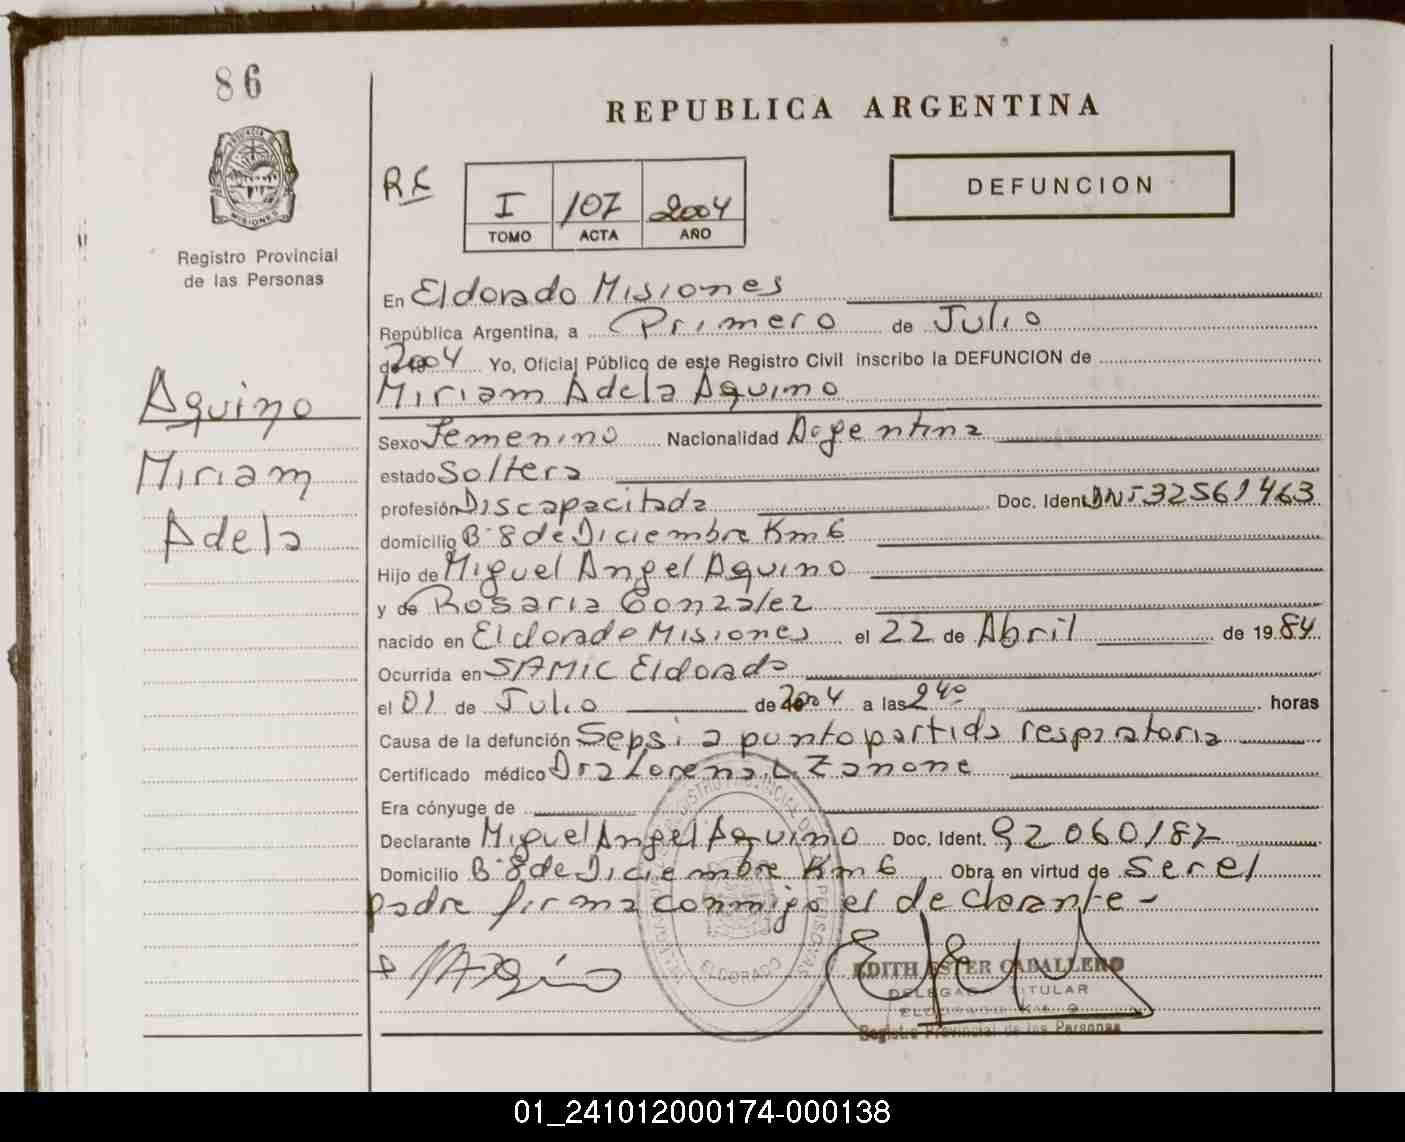 86
REPUBLICA ARGENTINA
DEFUNCION
I 107 2004
TOMO ACTA AÑO
Registro Provincial
de las Personas
Aquino
Miriam
Adela
En Eldorado Misiones
República Argentina, a Primero de Julio
de 2004 Yo, Oficial Público de este Registro Civil inscribo la DEFUNCION de
Miriam Adela Aquino
Sexo Femenino Nacionalidad Argentina
estado Soltera
profesión Discapacitada Doc. Ident. DNI 32561463
domicilio B- 8 de Diciembre Km 6
Hijo de Miguel Angel Aquino
y de Rosaria Gonzalez
nacido en Eldorado Misiones el 22 de Abril de 1984
Ocurrida en SAMIC Eldorado
el 01 de Julio de 2004 a las 2 40 horas
Causa de la defunción Sepsi a punto partida respiratoria
Certificado médico Dra Lorena L. Zanone
Era cónyuge de
Declarante Miguel Angel Aquino Doc. Ident. 92060187
Domicilio B- 8 de Diciembre Km 6 Obra en virtud de ser el
padre firma conmigo el declarante -
ELDORADO
EDITH ESTER CABALLERO
DELEGADA TITULAR
Registro Provincial de las Personas
01_241012000174-000138